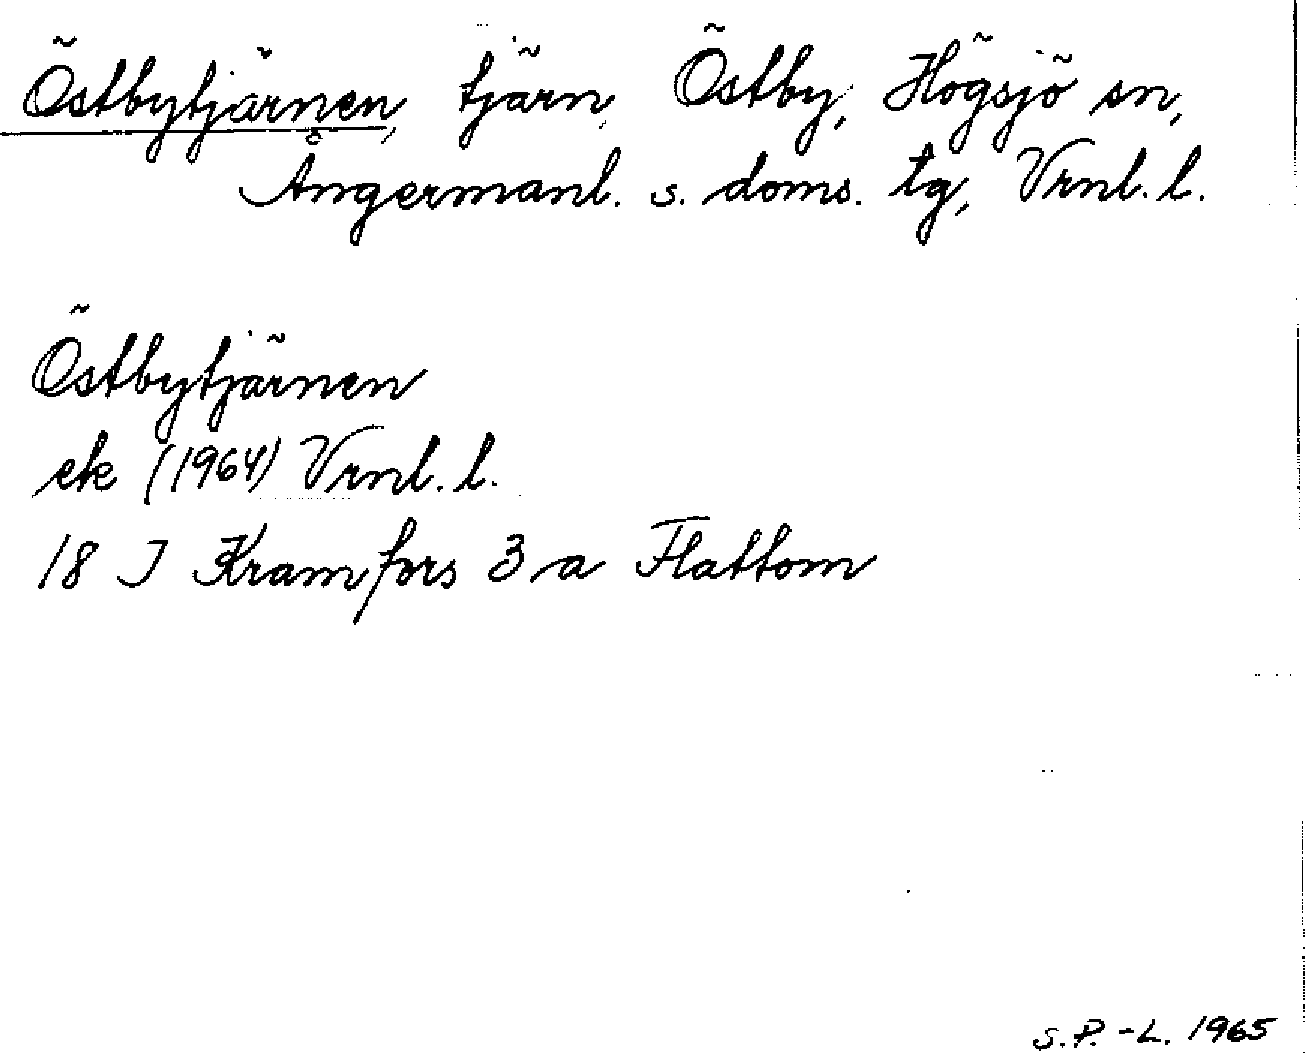 Östbytjärnen, tjärn, Östby, Högsjö sn,
Ångermanl. s. doms. tg, Vrnl. l.
Östbytjärnen
ek (1964) Vrnl. l.
18 J Kramfors 3 a Flattom
S.P.-L. 1965